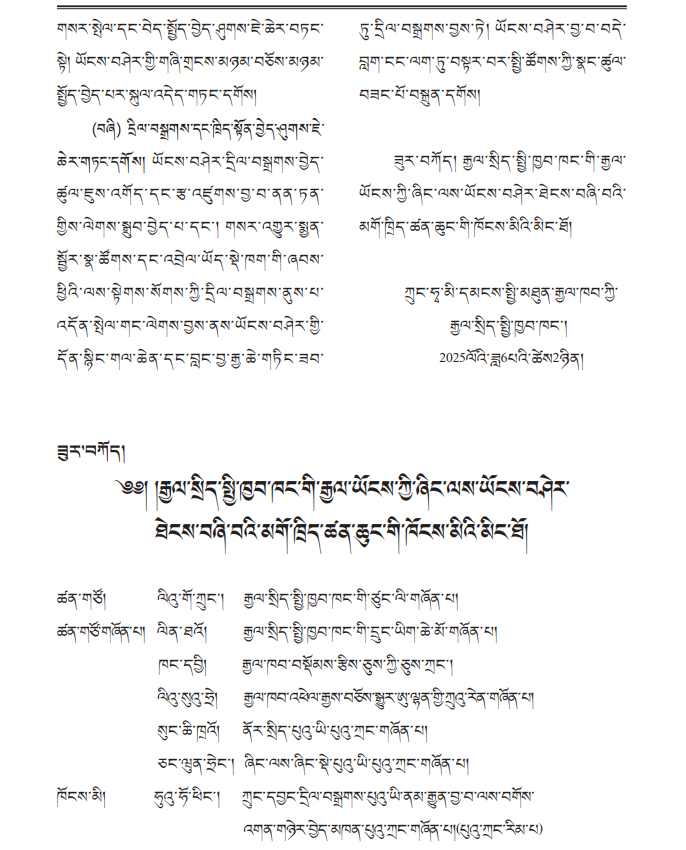 གསར་སྤེལ་དང་བེད་སྤྱོད་བྱེད་ཤུགས་ཇེ་ཆེར་བཏང་
སྟེ། ཡོངས་བཤེར་གྱི་གཞི་གྲངས་མཉམ་བཅོས་མཉམ་
སྤྱོད་བྱེད་པར་སྐུལ་འདེད་གཏང་དགོས།
(བཞི) དྲིལ་བསྒྲགས་དང་ཁྲིད་སྟོན་བྱེད་ཤུགས་ཇེ་
ཆེར་གཏང་དགོས། ཡོངས་བཤེར་དྲིལ་བསྒྲགས་བྱེད་
ཚུལ་ཇུས་འགོད་དང་རྩ་འཛུགས་བྱ་བ་ནན་ཏན་
གྱིས་ལེགས་སྒྲུབ་བྱེད་པ་དང་། གསར་འགྱུར་སྨྱན་
སྦྱོར་སྣ་ཚོགས་དང་འབྲེལ་ཡོད་སྡེ་ཁག་གི་ཞབས་
ཕྱིའི་ལས་སྟེགས་སོགས་ཀྱི་དྲིལ་བསྒྲགས་ནུས་པ་
འདོན་སྤེལ་གང་ལེགས་བྱས་ནས་ཡོངས་བཤེར་གྱི་
དོན་སྙིང་གལ་ཆེན་དང་བླང་བྱ་རྒྱ་ཆེ་གཏིང་ཟབ་
ཏུ་དྲིལ་བསྒྲགས་བྱས་ཏེ། ཡོངས་བཤེར་བྱ་བ་བདེ་
བླག་ངང་ལག་ཏུ་བསྟར་བར་སྤྱི་ཚོགས་ཀྱི་སྣང་ཚུལ་
བཟང་པོ་བསྐྲུན་དགོས།
ཟུར་བཀོད། རྒྱལ་སྲིད་སྤྱི་ཁྱབ་ཁང་གི་རྒྱལ་
ཡོངས་ཀྱི་ཞིང་ལས་ཡོངས་བཤེར་ཐེངས་བཞི་བའི་
མགོ་ཁྲིད་ཚན་ཆུང་གི་ཁོངས་མིའི་མིང་ཐོ།
ཀྲུང་ཧྭ་མི་དམངས་སྤྱི་མཐུན་རྒྱལ་ཁབ་ཀྱི་
རྒྱལ་སྲིད་སྤྱི་ཁྱབ་ཁང་།
2025ལོའི་ཟླ6པའི་ཚེས2ཉིན།
ཟུར་བཀོད།
༄༅། །རྒྱལ་སྲིད་སྤྱི་ཁྱབ་ཁང་གི་རྒྱལ་ཡོངས་ཀྱི་ཞིང་ལས་ཡོངས་བཤེར་
ཐེངས་བཞི་བའི་མགོ་ཁྲིད་ཚན་ཆུང་གི་ཁོངས་མིའི་མིང་ཐོ།
ཚན་གཙོ། ལིའུ་གོ་ཀྲུང་། རྒྱལ་སྲིད་སྤྱི་ཁྱབ་ཁང་གི་ཙུང་ལི་གཞོན་པ།
ཚན་གཙོ་གཞོན་པ། ལིན་ཐའོ། རྒྱལ་སྲིད་སྤྱི་ཁྱབ་ཁང་གི་དྲུང་ཡིག་ཆེ་མོ་གཞོན་པ།
ཁང་དབྱི། རྒྱལ་ཁབ་བསྡོམས་རྩིས་ཅུས་ཀྱི་ཅུས་ཀྲང་།
ལིའུ་སུའུ་ཧྲེ། རྒྱལ་ཁབ་འཕེལ་རྒྱས་བཅོས་སྒྱུར་ཨུ་ལྷན་གྱི་ཀྲུའུ་རེན་གཞོན་པ།
སུང་ཆི་ཁྲའོ། ནོར་སྲིད་པུའུ་ཡི་པུའུ་ཀྲང་གཞོན་པ།
ཅང་ལུན་ཧྲེང་། ཞིང་ལས་ཞིང་སྡེ་པུའུ་ཡི་པུའུ་ཀྲང་གཞོན་པ།
ཁོངས་མི། ཧུའུ་ཧོ་ཕིང་། ཀྲུང་དབྱང་དྲིལ་བསྒྲགས་པུའུ་ཡི་ནམ་རྒྱུན་བྱ་བ་ལས་བགོས་
འགན་གཉེར་བྱེད་མཁན་པུའུ་ཀྲང་གཞོན་པ།(པུའུ་ཀྲང་རིམ་པ)